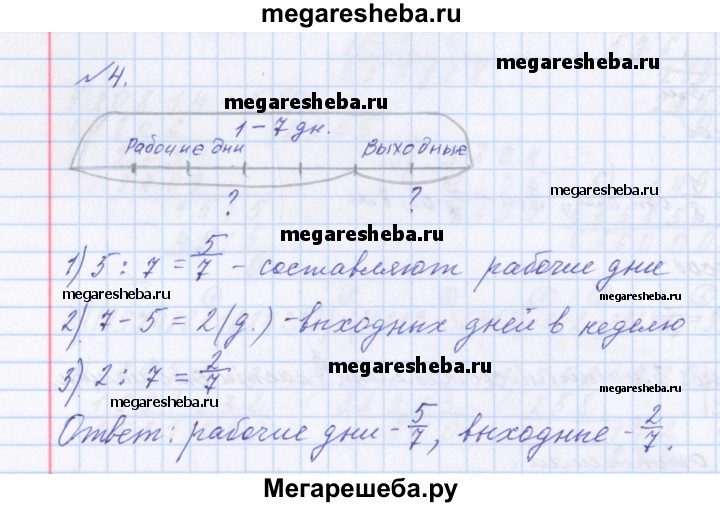 megaresheba.ru
№4.
megaresheba.ru
1 - 7 дн.
Рабочие дни Выходные
megaresheba.ru
? ?
megaresheba.ru
1) 5 : 7 = 5/7 - составляют рабочие дни
megaresheba.ru megaresheba.ru
2) 7 - 5 = 2 (д.) - выходных дней в неделю
3) 2 : 7 = 2/7
megaresheba.ru
megaresheba.ru
megaresheba.ru
Ответ: рабочие дни - 5/7, выходные - 2/7.
Мегарешеба.ру